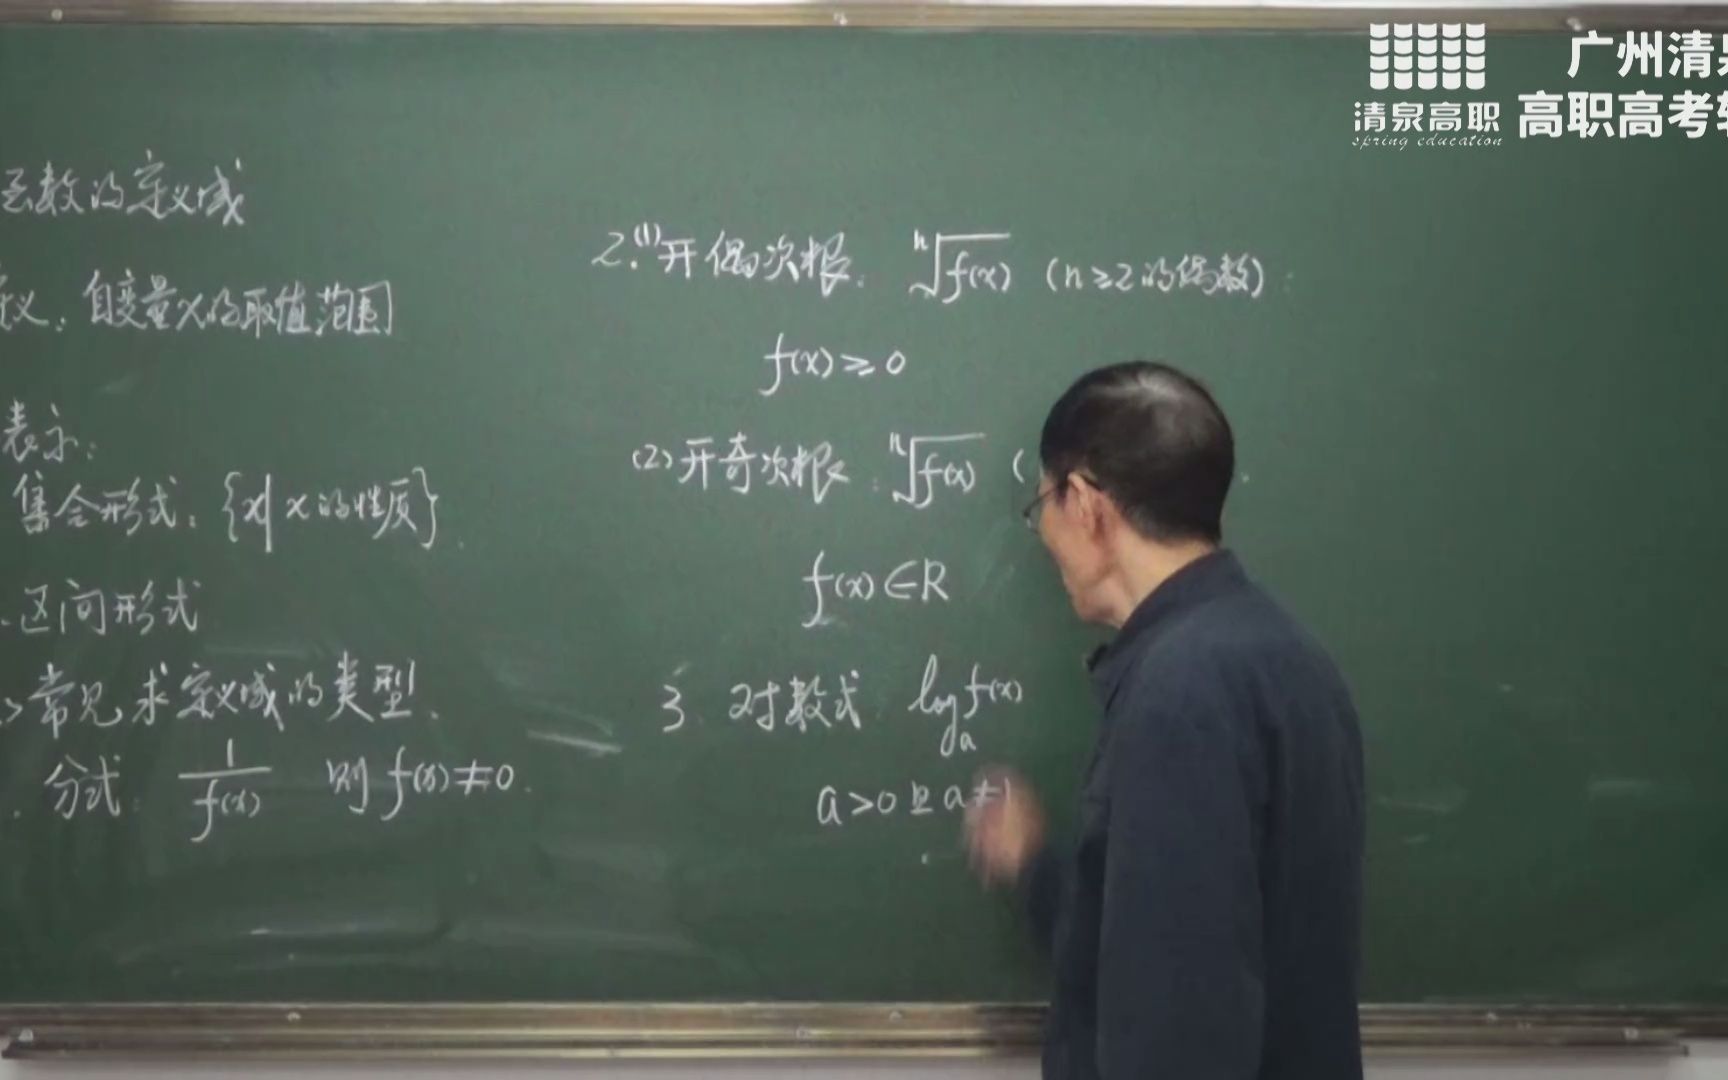 函数的定义域
义：自变量x的取值范围
表示：
集合形式：{x|x的性质}
区间形式
常见求定义域的类型
分式：1/f(x) 则 f(x)≠0.
2.(1)开偶次根：ⁿ√f(x) (n≥2的偶数)
f(x)≥0
(2)开奇次根：ⁿ√f(x) (
f(x)∈R
3. 对数式 logₐf(x)
a>0且a≠1
清泉高职
spring education
广州清
高职高考